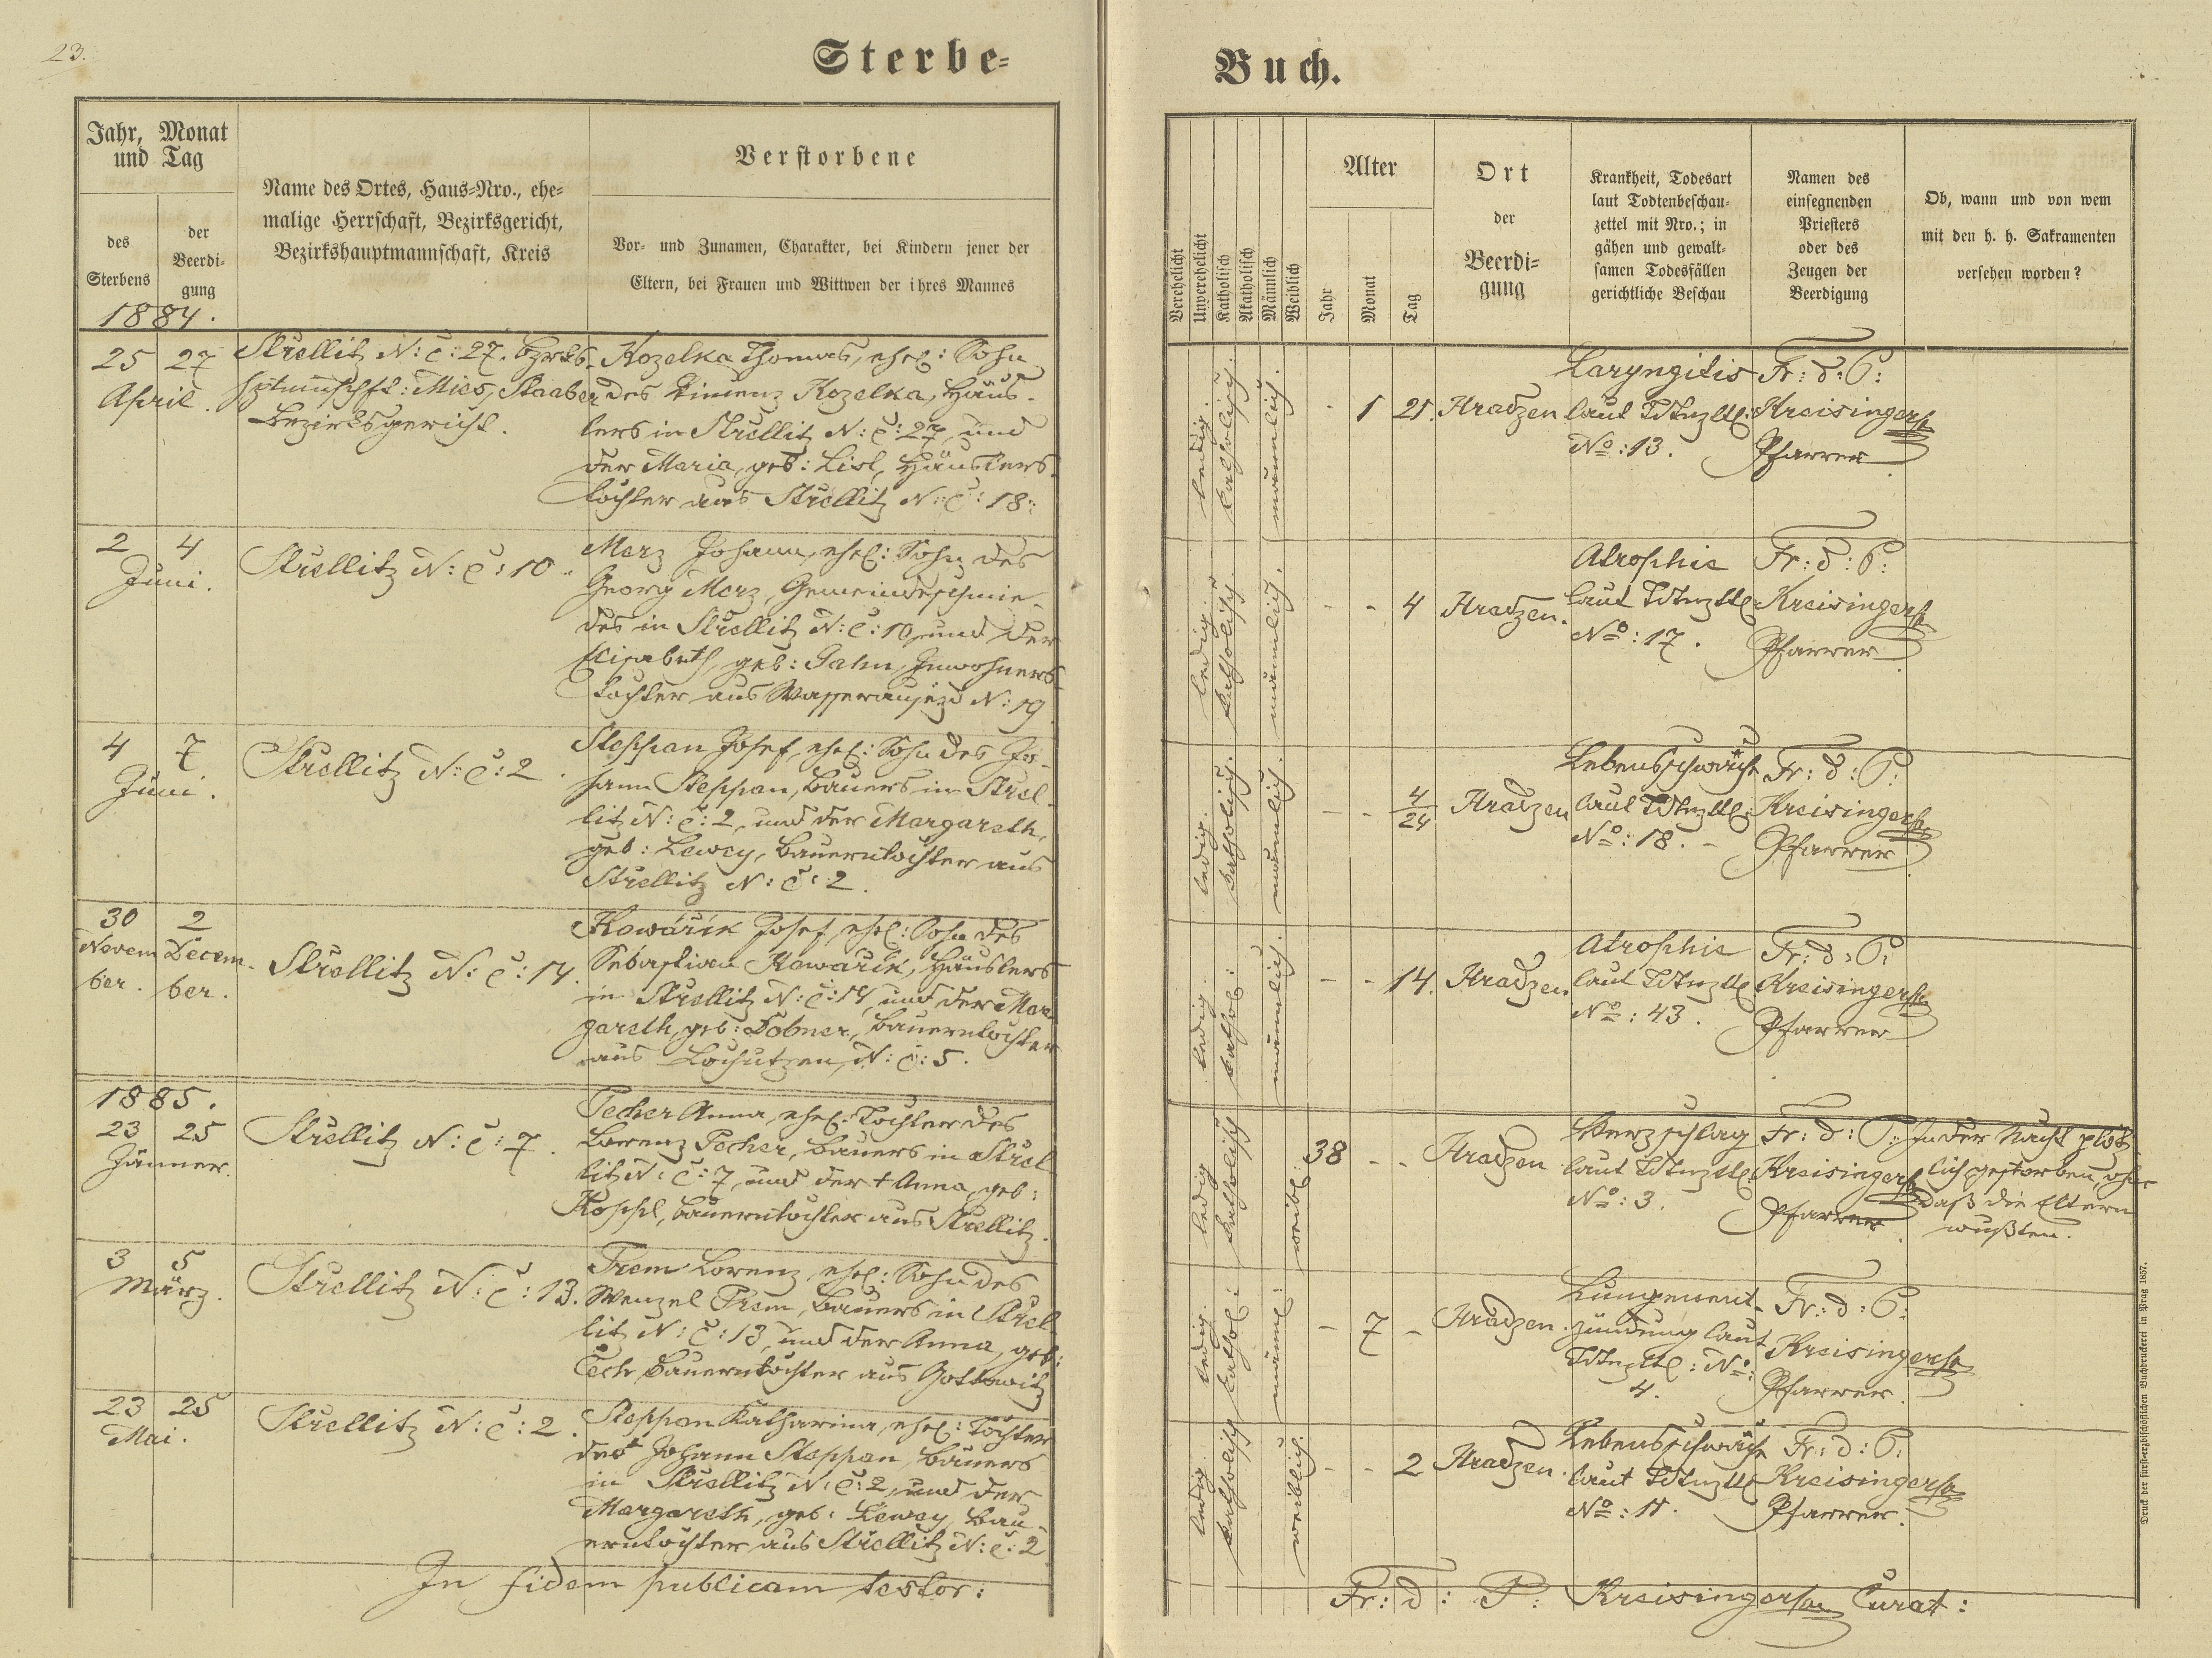 23.
Sterbe-
Buch.
Jahr, Monat
und Tag
des
Sterbens
der
Beerdi-
gung
Name des Ortes, Haus-Nro., ehe-
malige Herrschaft, Bezirksgericht,
Bezirkshauptmannschaft, Kreis
Verstorbene
Vor- und Zunamen, Charakter, bei Kindern jener der
Eltern, bei Frauen und Wittwen der ihres Mannes
Verehelicht
Unverehelicht
Katholisch
Akatholisch
Männlich
Weiblich
Alter
Jahr
Monat
Tag
Ort
der
Beerdi-
gung
Krankheit, Todesart
laut Todtenbeschau-
zettel mit Nro.; in
gähen und gewalt-
samen Todesfällen
gerichtliche Beschau
Namen des
einsegnenden
Priesters
oder des
Zeugen der
Beerdigung
Ob, wann und von wem
mit den h. h. Sakramenten
versehen worden?
1884.
25 27
April.
Strellitz N: C: 27. Bzrks-
hptmschft: Mies, Staaber
Bezirksgericht.
Kozelka Thomas, ehel: Sohn
des Kozelka, Häus-
lers in Strellitz N: C: 27, und
der Maria, geb: Lisl, Häuslers
tochter aus Strellitz N: C: 18.
ledig.
katholisch.
männlich.
- 1 21.
Hradzen
Laryngitis
laut Tdtnzttl:
No: 13.
Fr: d: P:
Kreisinger
Pfarrer
2 4
Juni.
Strellitz N: C: 10.
Merz Johann, ehel: Sohn des
Georg Merz, Gemeindeschmie-
des in Strellitz N: C: 10, und der
Elisabeth, geb: Jahn, Inwohners-
tochter aus Wasseraujezd N: 19
ledig.
katholisch.
männlich.
- - 4
Hradzen.
Atrophie
laut Tdtnzttl:
No: 17.
Fr: d: P:
Kreisinger
Pfarrer
4 7
Juni.
Strellitz N: C: 2.
Steppan Josef, ehel: Sohn des Jo-
hann Steppan, Bauers in Strel-
litz N: C: 2, und der Margareth,
geb: Lewey, Bauerntochter aus
Strellitz N: C: 2.
ledig.
katholisch.
männlich.
- - 4/24
Hradzen
Lebensschwäche
laut Tdtnzttl:
No: 18. -
Fr: d: P:
Kreisinger
Pfarrer
30 2
Novem Decem-
ber. ber.
Strellitz N: C: 14.
Kowařik Josef, ehel: Sohn des
Sebastian Kowařik, Häuslers
in Strellitz N: C: 14, und der Mar
gareth, geb: Dobner, Bauerntochter
aus Lochutzen, N: C: 5.
ledig.
kathol:
männlich.
- - 14.
Hradzen
Atrophie
laut Tdtnzttl
No: 43.
Fr: d: P:
Kreisinger
Pfarrer
1885.
23 25
Jänner.
Strellitz N: C: 7.
Pecher Anna, ehel: Tochter des
Lorenz Pecher, Bauers in Strel
litz N: C: 7, und der † Anna, geb:
Koppl, Bauerntochter aus Strellitz.
ledig
katholisch
weibl:
38 - -
Hradzen
Herzschlag
laut Tdtnzttl:
No: 3.
Fr: d: P:
Kreisinger
Pfarrer
In der Nacht plötz-
lich gestorben, ohne
daß die Eltern
wußten.
3 5
März.
Strellitz N: C: 13.
Trem Lorenz, ehel: Sohn des
Wenzel Trem, Bauers in Strel-
litz N: C: 13, und der Anna, geb:
Čech, Bauerntochter aus Gottowitz
ledig.
kathol:
männl:
- 7 -
Hradzen.
Lungenent-
zündung laut
Tdtnzttl: No:
4.
Fr: d: P:
Kreisinger
Pfarrer.
23 25
Mai.
Strellitz N: C: 2.
Steppan Katharina, ehel: Tochter
des † Johann Steppan, Bauers
in Strellitz N: C: 2, und der
Margareth, geb: Lewey, Bau-
erntochter aus Strellitz N: C: 2
ledig.
katholisch
weiblich.
- - 2
Hradzen.
Lebensschwäche
laut Tdtnzttl
No: 11.
Fr: d: P:
Kreisinger
Pfarrer.
In fidem publicam testor:
Fr: d: P: Kreisinger Curat:
Druck der fürsterzbischöflichen Buchdruckerei in Prag 1857.